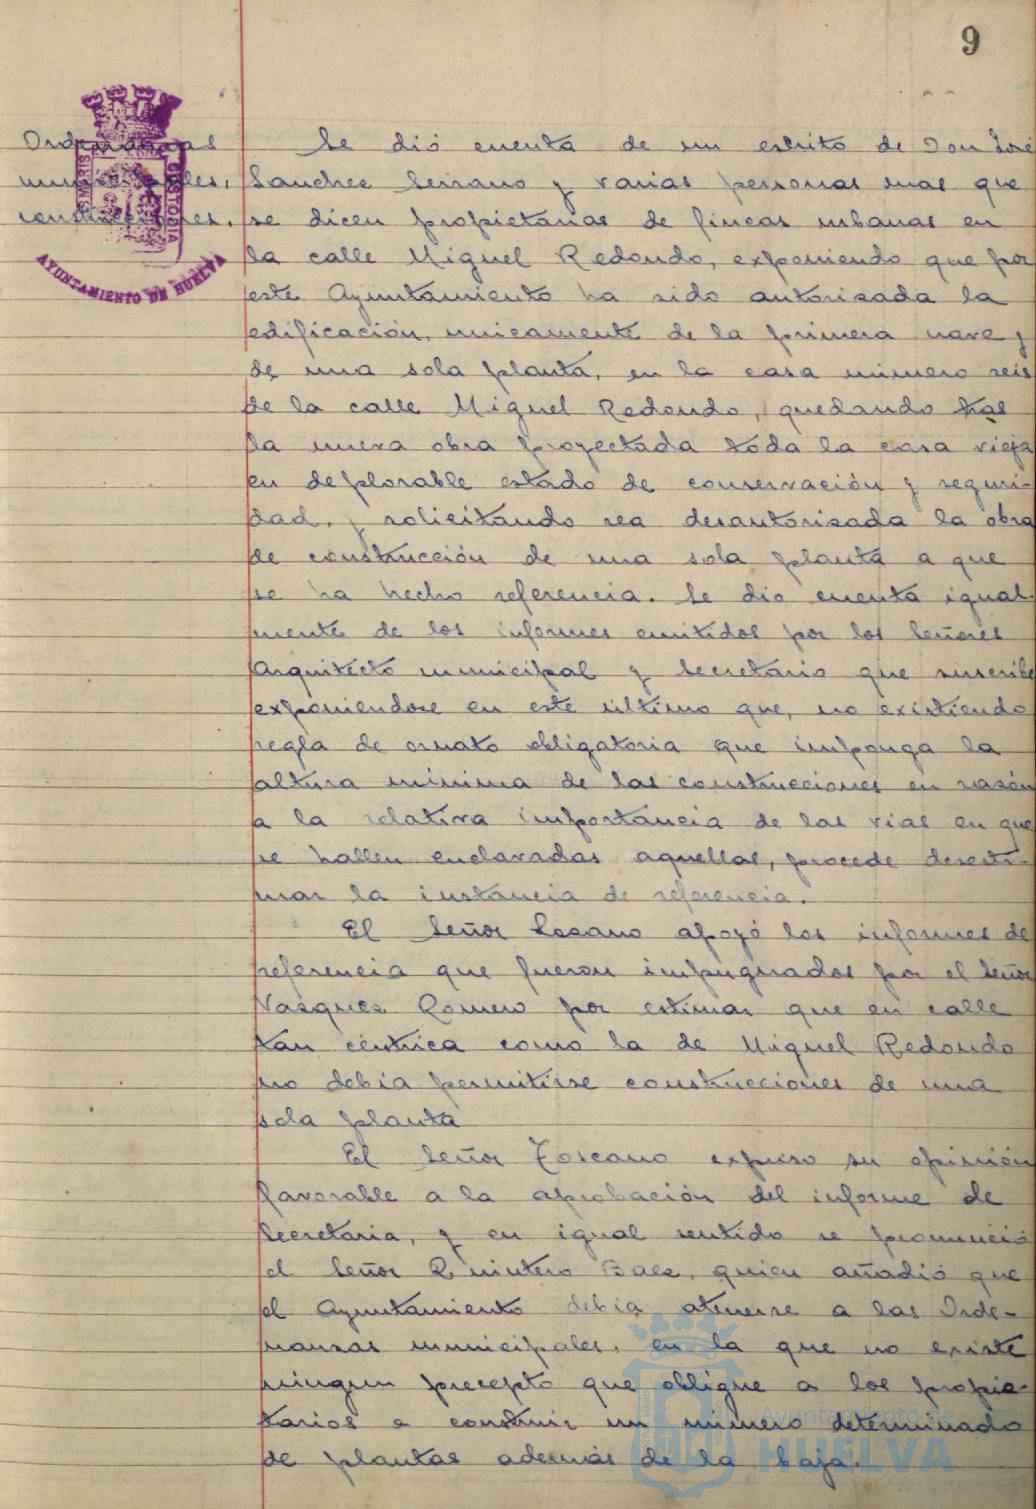 9
Ordenanzas
municipales,
construcciones.
Se dió cuenta de un escrito de Don José
Sanchez Serrano y varias personas mas que
se dicen propietarias de fincas urbanas en
la calle Miguel Redondo, exponiendo que por
este Ayuntamiento ha sido autorizada la
edificación, unicamente de la primera nave y
de una sola planta, en la casa número seis
de la calle Miguel Redondo, quedando tras
la nueva obra proyectada toda la casa vieja
en deplorable estado de conservación y seguri-
dad, y solicitando sea desautorizada la obra
de construcción de una sola planta a que
se ha hecho referencia. Se dio cuenta igual-
mente de los informes emitidos por los Señores
Arquitecto municipal y Secretario que suscribe
exponiendose en este último que, no existiendo
regla de ornato obligatoria que imponga la
altura minima de las construcciones en razón
a la relativa importancia de las vias en que
se hallen enclavadas aquellas, procede desesti-
mar la instancia de referencia.
El Señor Lozano apoyó los informes de
referencia que fueron impugnados por el Señor
Vazquez Romero por estimar que en calle
tan céntrica como la de Miguel Redondo
no debia permitirse construcciones de una
sola planta
El Señor Toscano expuso su opinión
favorable a la aprobación del informe de
Secretaria, y en igual sentido se pronunció
el Señor Quintero Baez, quien añadió que
el Ayuntamiento debia atenerse a las Orde-
nanzas municipales, en la que no existe
ningun precepto que obligue a los propie-
tarios a construir un número determinado
de plantas además de la baja.
AYUNTAMIENTO DE HUELVA
CUSTODIA
Ayuntamiento de
HUELVA